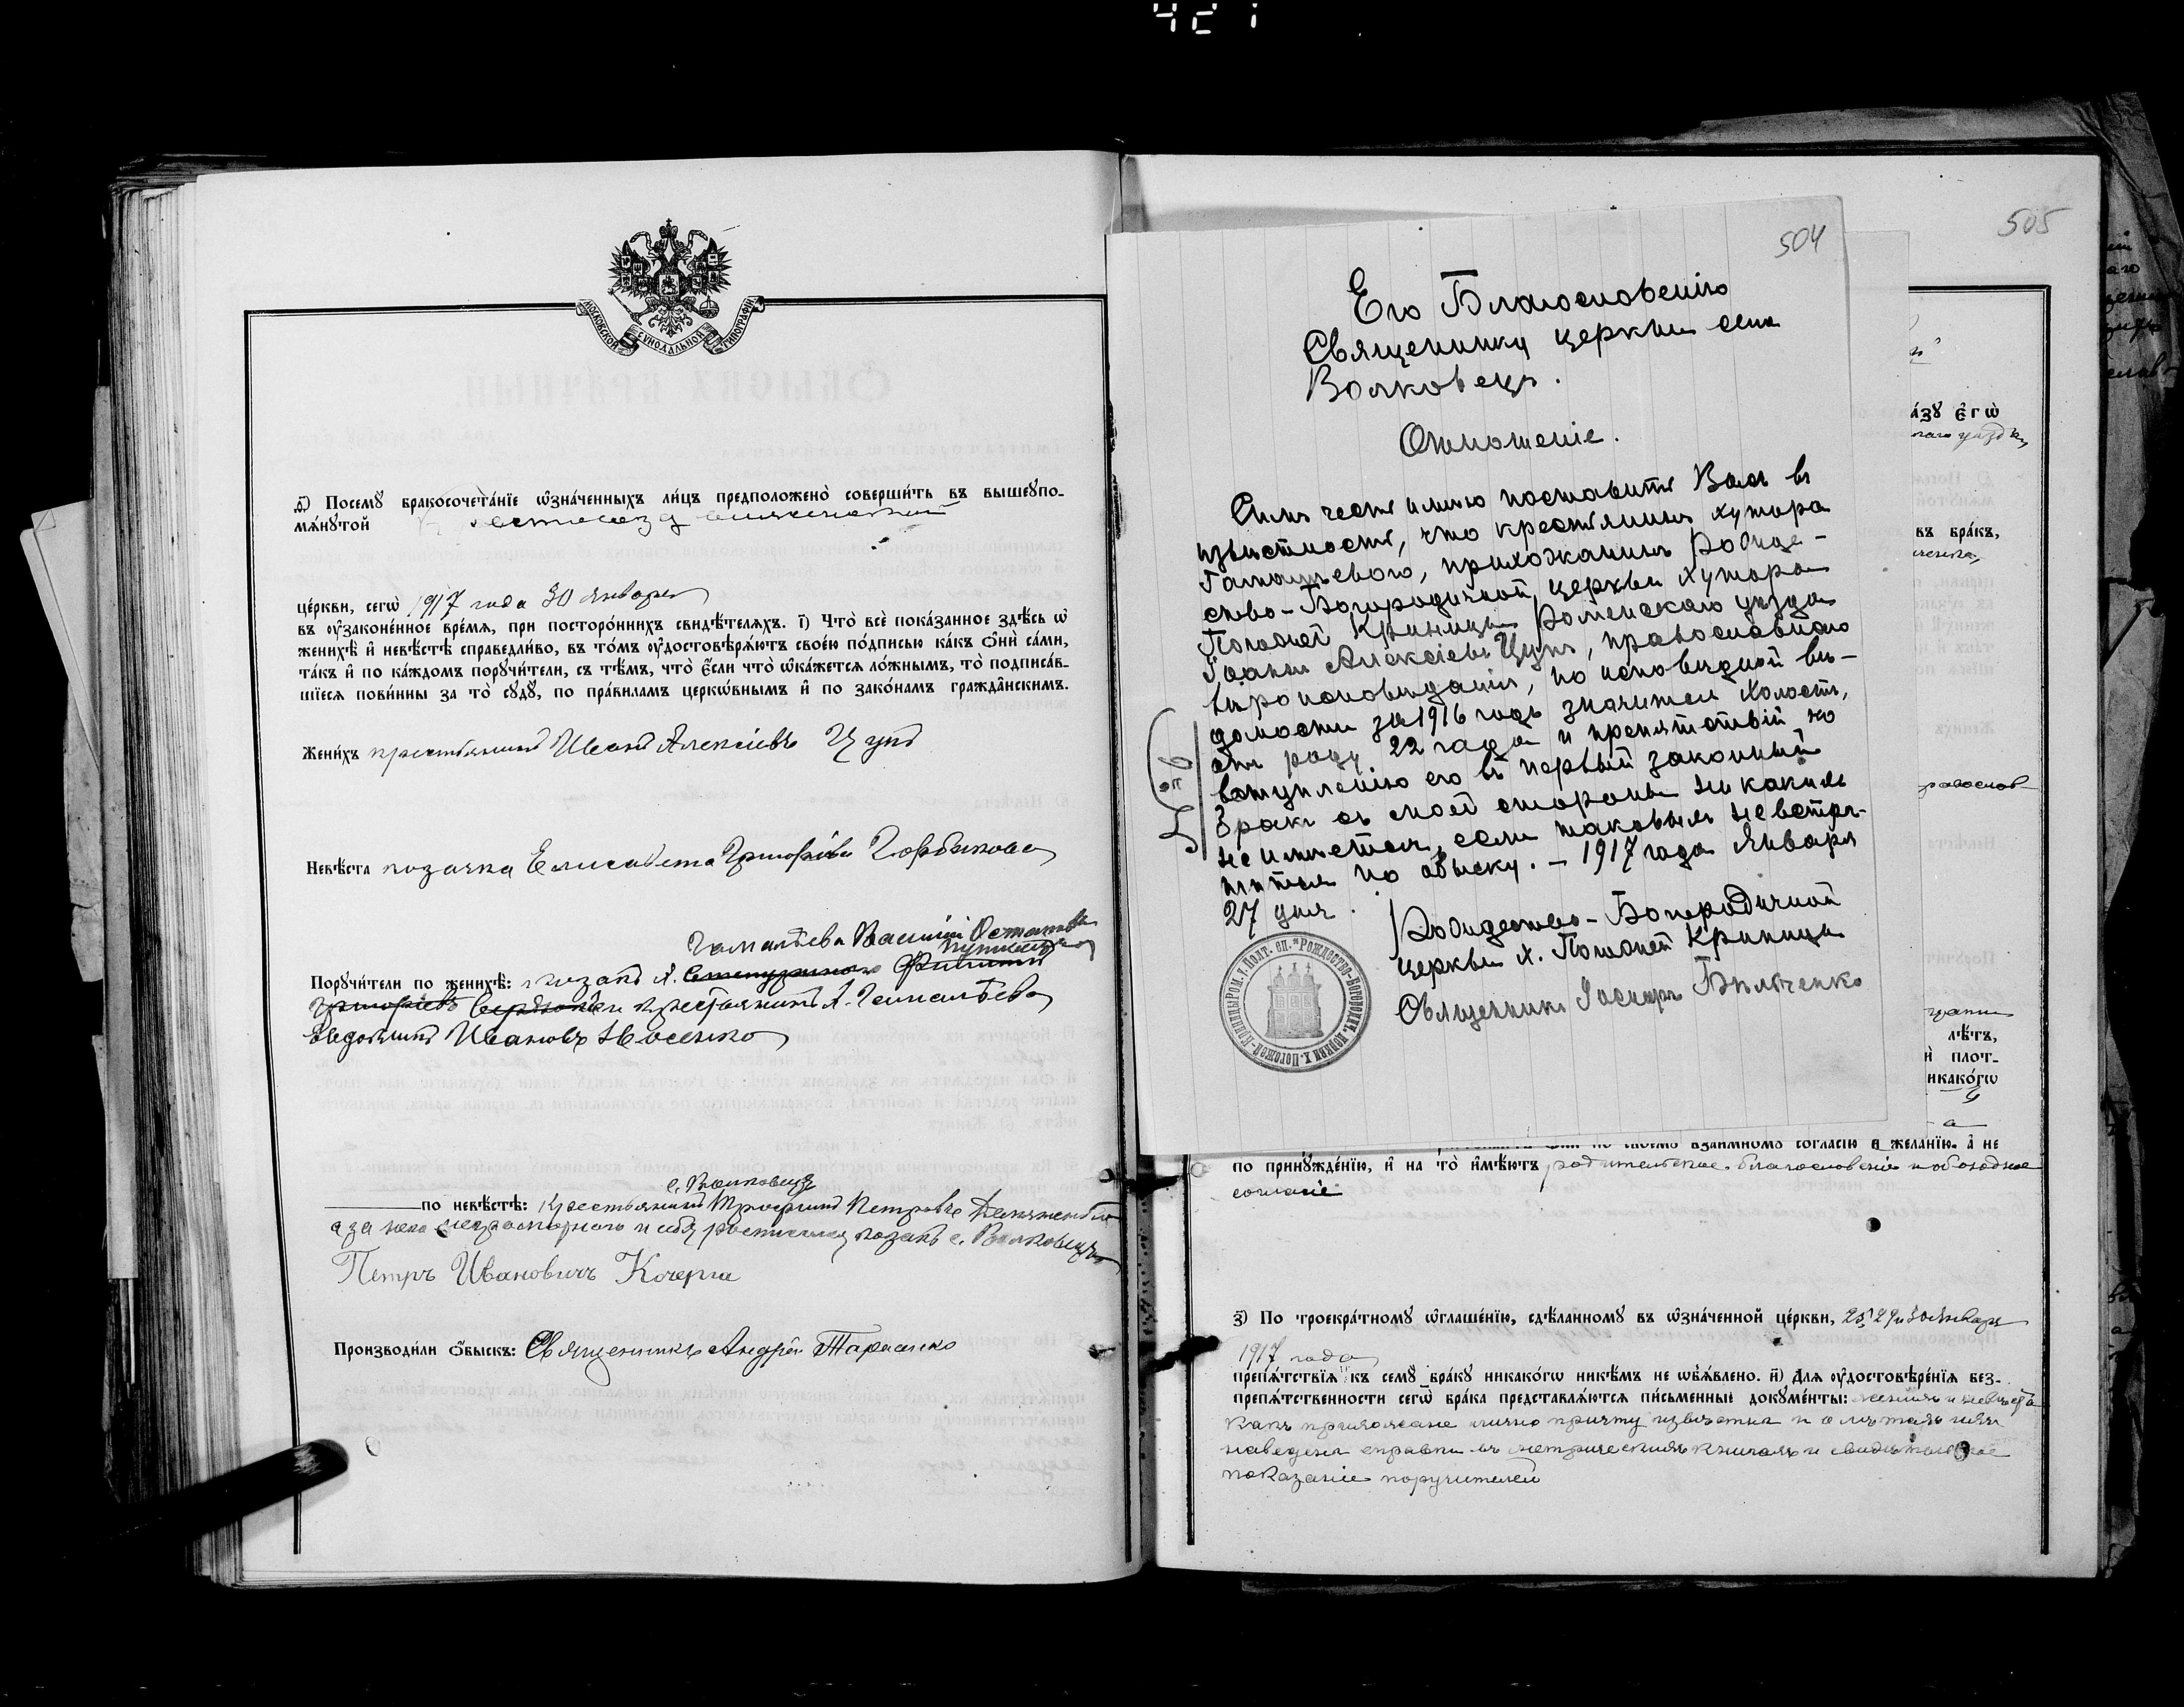 МОСКОВСКОЙ СѴНОДАЛЬНОЙ ТИПОГРАФІИ
д҃) Посемꙋ бракосочета́нїе ѡ҆зна́ченныхъ ли́цъ предположено̀ соверши́ть въ вышеꙋпо-
мѧ́нꙋтой
це́ркви, сегѡ̀ 1917 года 30 января
въ ᲂу҆зако́ненное вре́мѧ, при посторо́ннихъ свидѣ́телѧхъ. і҃) Что̀ всѐ пока́занное здѣ́сь ѡ҆
женихѣ̀ и҆ невѣ́стѣ справедли́во, въ то́мъ ᲂу҆достовѣрѧ́ютъ свое́ю по́дписью ка́къ ѻ҆нѝ са́ми,
та́къ и҆ по ка́ждомъ порꙋчи́тели, съ тѣ́мъ, что̀ є҆́сли что̀ ѡ҆ка́жетсѧ ло́жнымъ, то̀ подписа́в-
шїесѧ пови́нны за то̀ сꙋдꙋ̀, по пра́виламъ церко́внымъ и҆ по зако́намъ гражда́нскимъ.
Жени́хъ крестьянинъ Иванъ Алексіевъ Цупъ
Невѣ́ста козачка Елисавета Григоріева Горбикова
Гамалѣева Василій Остаповъ
Порꙋчи́тели по женихѣ̀: козакъ х.
и крестьянинъ х. Гамалѣева
Ивановъ Носенко
с. Волковецъ
по невѣ́стѣ: Крестьянинъ Трофимъ Петровъ
а за него неграмотного и себя росписался козакъ с. Волковецъ
Петръ Ивановичъ Кочерга
Производи́ли ѻ҆́быскъ: Священникъ Андрей Тарасенко
504
Его Благословенію
Священнику церкви села
Волковецъ.
Отношеніе.
Симъ честь имѣю поставить Васъ въ
извѣстность, что крестьянинъ хутора
Гамалѣевого, прихожанинъ Рождe-
ство-Богородичной церкви хутора
Погожей Криницы Роменскаго уѣзда
Іоаннъ Алексіевъ Цупъ, православнаго
вѣроисповѣданія, по исповѣдной вѣ-
домости за 1916 годъ значится холостъ,
отъ роду 22 года и препятствій ко
вступленію его въ первый законный
бракъ съ моей стороны никакихъ
не имѣется, если таковыхъ не встрѣ-
тится по обыску. – 1917 года Января
27 дня.
№ 6
Рождество-Богородичной
церкви х. Погожей Криницы
Священникъ Іосифъ Бѣльченко
РОМ. У. ПОЛТ. ЕП. * РОЖДЕСТВО-БОГОРОДИЧ. ЦЕРКВИ Х. ПОГОЖЕЙ-КРИНИЦЫ
505
а́зꙋ є҆гѡ̀
уѣзда
въ бра́къ,
лѣ́тъ,
и҆ пло́т-
никако́гѡ
взаи́мномꙋ согла́сїю и҆ жела́нїю, а҆ не
по принꙋжде́нїю, и҆ на то̀ и҆мѣ́ютъ родительское благословеніе и обоюдное
согласіе
з҃) По троекра́тномꙋ ѡ҆глаше́нїю, сдѣ́ланномꙋ въ ѡ҆зна́ченной це́ркви, 25, 29 и 30 Января
1917 года
препѧ́тствїѧ къ семꙋ̀ бра́кꙋ никако́гѡ никѣ́мъ не ѡ҆б̾ѧ́влено. и҃) Для ᲂу҆достовѣре́нїѧ без-
препѧ́тственности сегѡ̀ бра́ка представлѧ́ютсѧ пи́сьменные докꙋме́нты: женихъ и невѣста
какъ прихожане лично причту извѣстны и о лѣтахъ ихъ
наведены справки въ метрическихъ книгахъ и свидѣтельское
показаніе поручителей